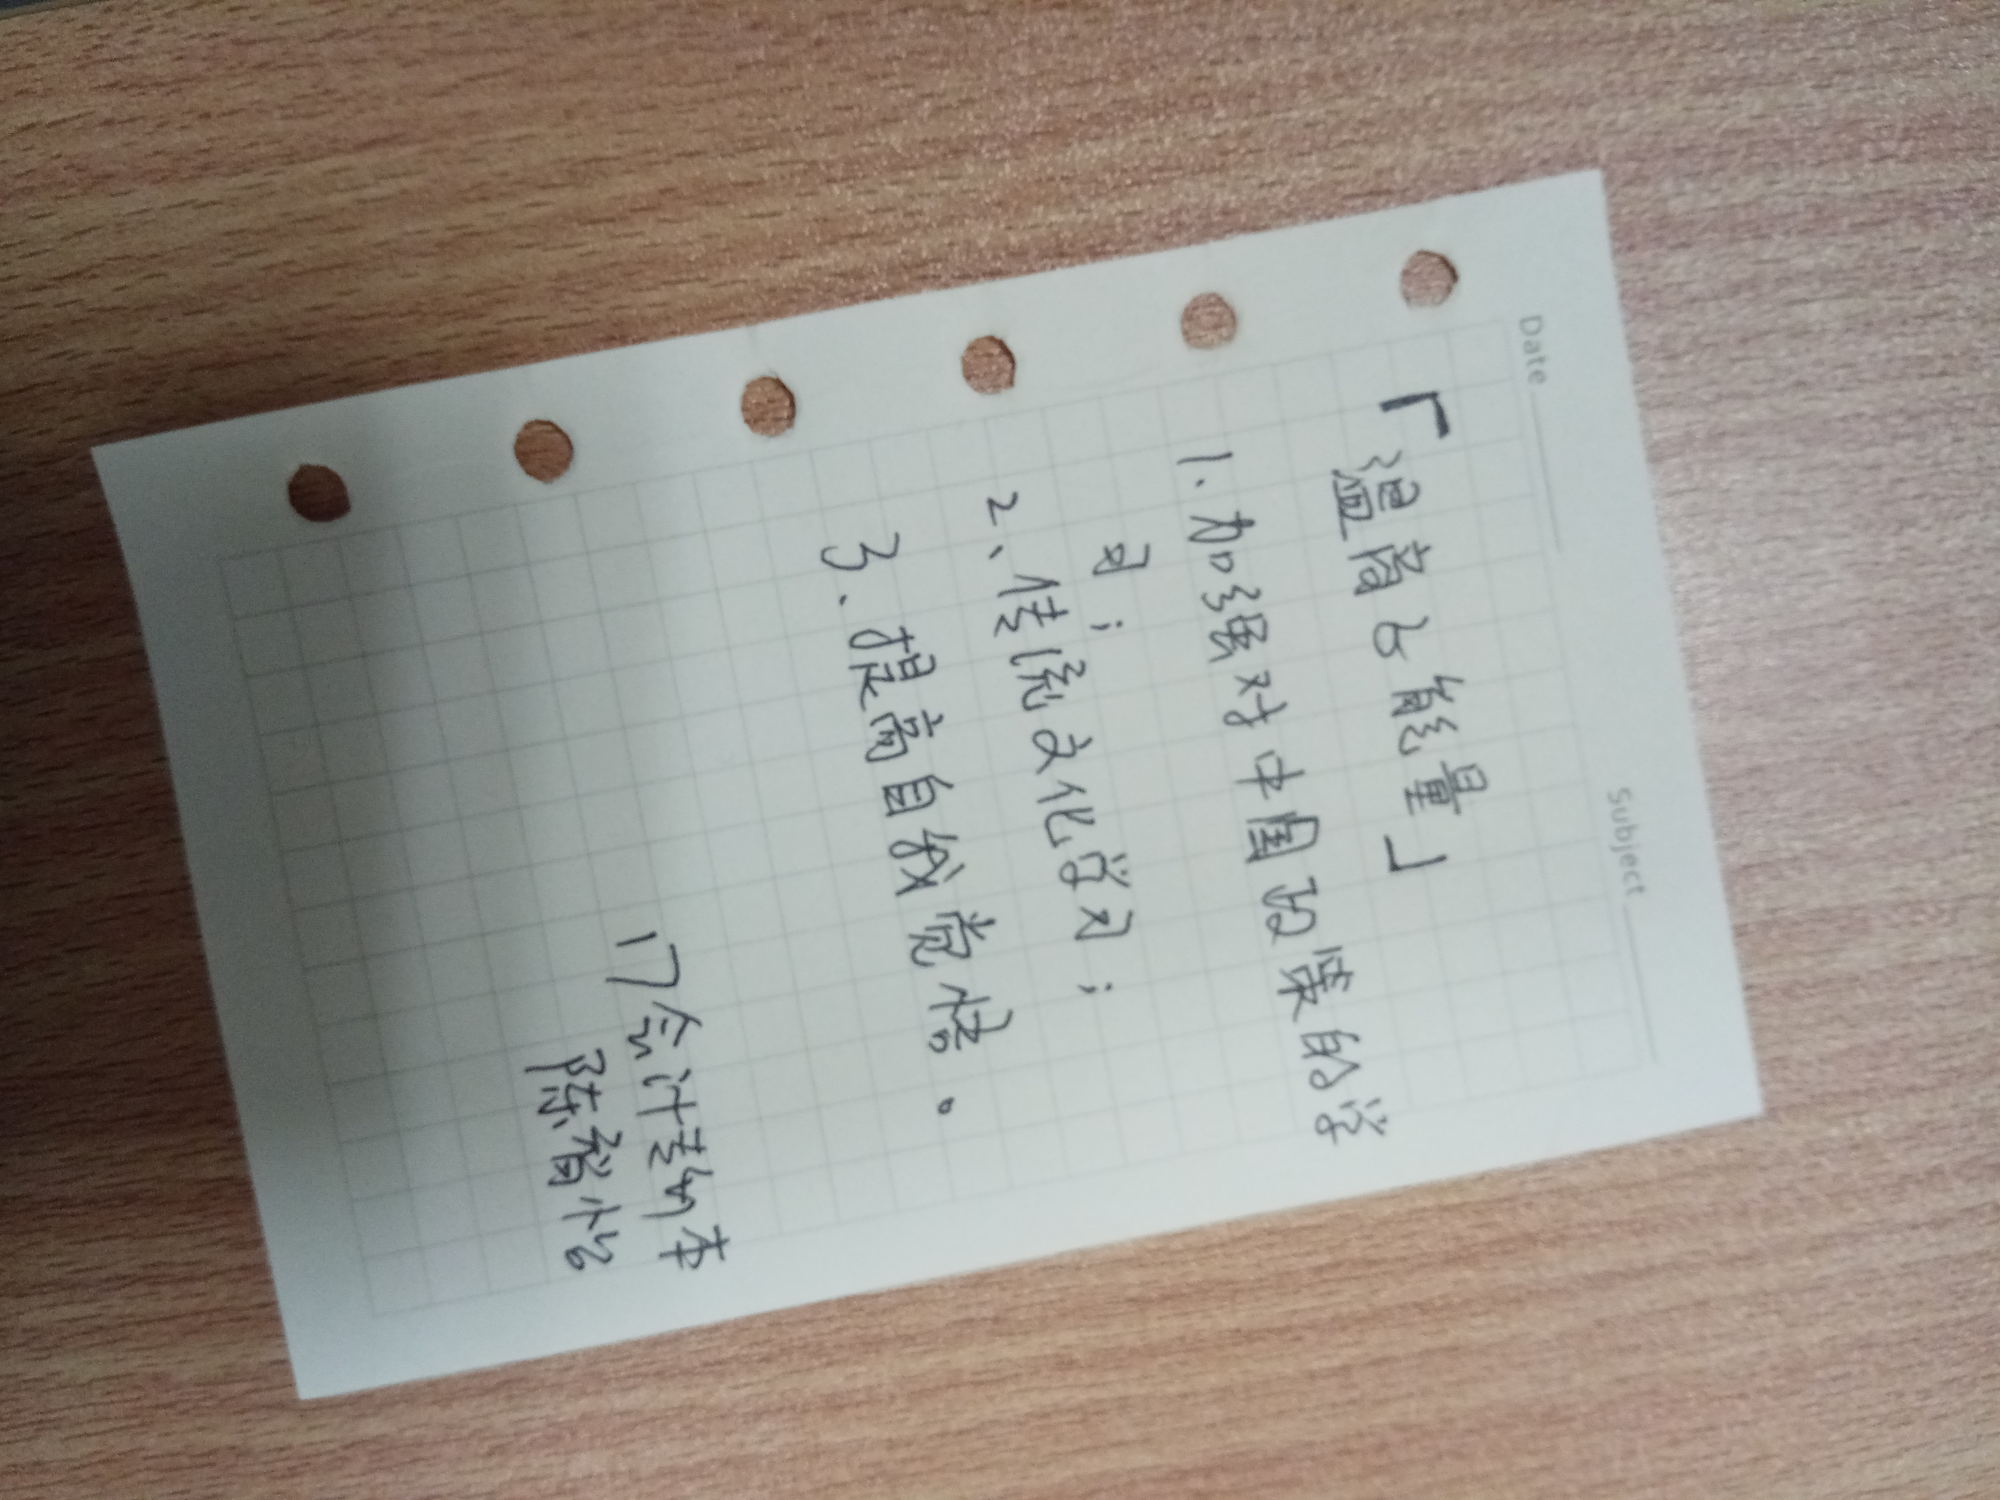 Date Subject
「温商之能量」
1.加强对中国政策的学
习；
2、传统文化学习；
3、提高自我觉悟。
17会计专升本
陈智怡